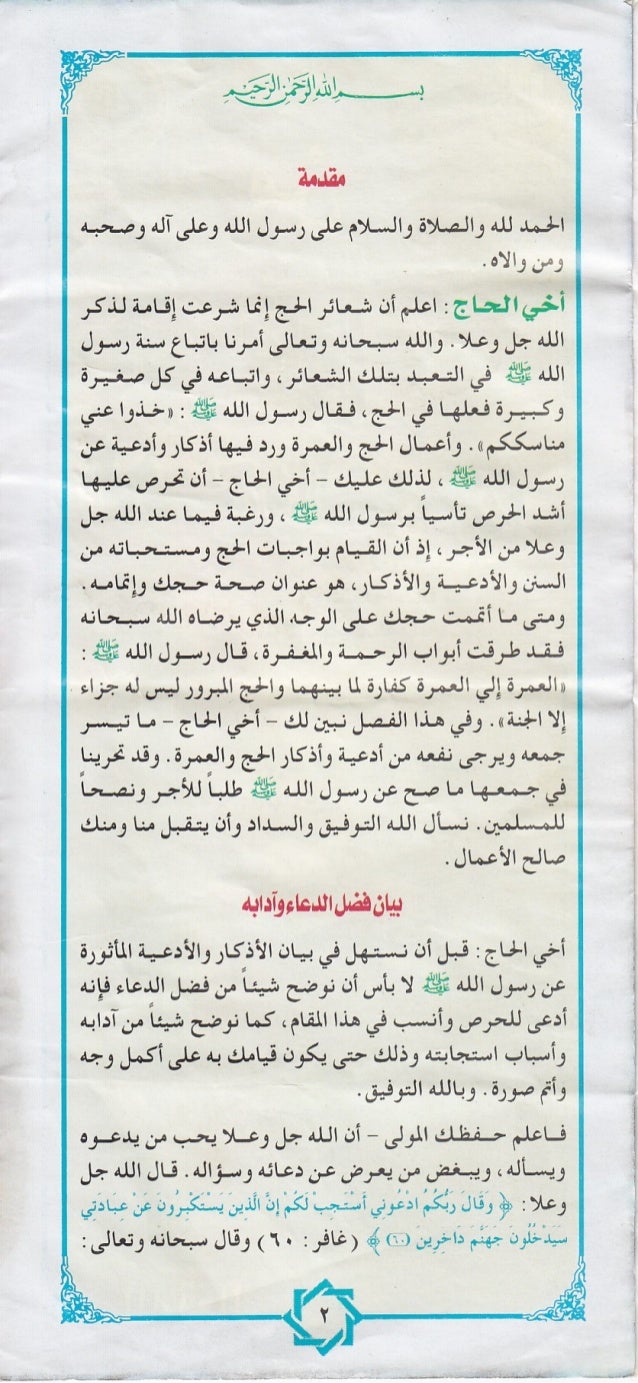 بسم الله الرحمن الرحيم
مقدمة
الحمد لله والصلاة والسلام على رسول الله وعلى آله وصحبه
ومن والاه.
أخي الحاج: اعلم أن شعائر الحج إنما شرعت إقامة لذكر
الله جل وعلا. والله سبحانه وتعالى أمرنا باتباع سنة رسول
الله ﷺ في التعبد بتلك الشعائر، واتباعه في كل صغيرة
وكبيرة فعلها في الحج، فقال رسول الله ﷺ: «خذوا عني
مناسككم». وأعمال الحج والعمرة ورد فيها أذكار وأدعية عن
رسول الله ﷺ، لذلك عليك - أخي الحاج - أن تحرص عليها
أشد الحرص تأسياً برسول الله ﷺ، ورغبة فيما عند الله جل
وعلا من الأجر، إذ أن القيام بواجبات الحج ومستحباته من
السنن والأدعية والأذكار، هو عنوان صحة حجك وإتمامه.
ومتى ما أتممت حجك على الوجه الذي يرضاه الله سبحانه
فقد طرقت أبواب الرحمة والمغفرة، قال رسول الله ﷺ:
«العمرة إلي العمرة كفارة لما بينهما والحج المبرور ليس له جزاء
إلا الجنة». وفي هذا الفصل نبين لك - أخي الحاج - ما تيسر
جمعه ويرجى نفعه من أدعية وأذكار الحج والعمرة. وقد تحرينا
في جمعها ما صح عن رسول الله ﷺ طلباً للأجر ونصحاً
للمسلمين. نسأل الله التوفيق والسداد وأن يتقبل منا ومنك
صالح الأعمال.
بيان فضل الدعاء وآدابه
أخي الحاج: قبل أن نستهل في بيان الأذكار والأدعية المأثورة
عن رسول الله ﷺ لا بأس أن نوضح شيئاً من فضل الدعاء فإنه
أدعى للحرص وأنسب في هذا المقام، كما نوضح شيئاً من آدابه
وأسباب استجابته وذلك حتى يكون قيامك به على أكمل وجه
وأتم صورة. وبالله التوفيق.
فاعلم حفظك المولى - أن الله جل وعلا يحب من يدعوه
ويسأله، ويبغض من يعرض عن دعائه وسؤاله. قال الله جل
وعلا: ﴿وَقَالَ رَبُّكُمُ ادْعُونِي أَسْتَجِبْ لَكُمْ إِنَّ الَّذِينَ يَسْتَكْبِرُونَ عَنْ عِبَادَتِي
سَيَدْخُلُونَ جَهَنَّمَ دَاخِرِينَ (٦٠)﴾ (غافر: ٦٠) وقال سبحانه وتعالى:
٢